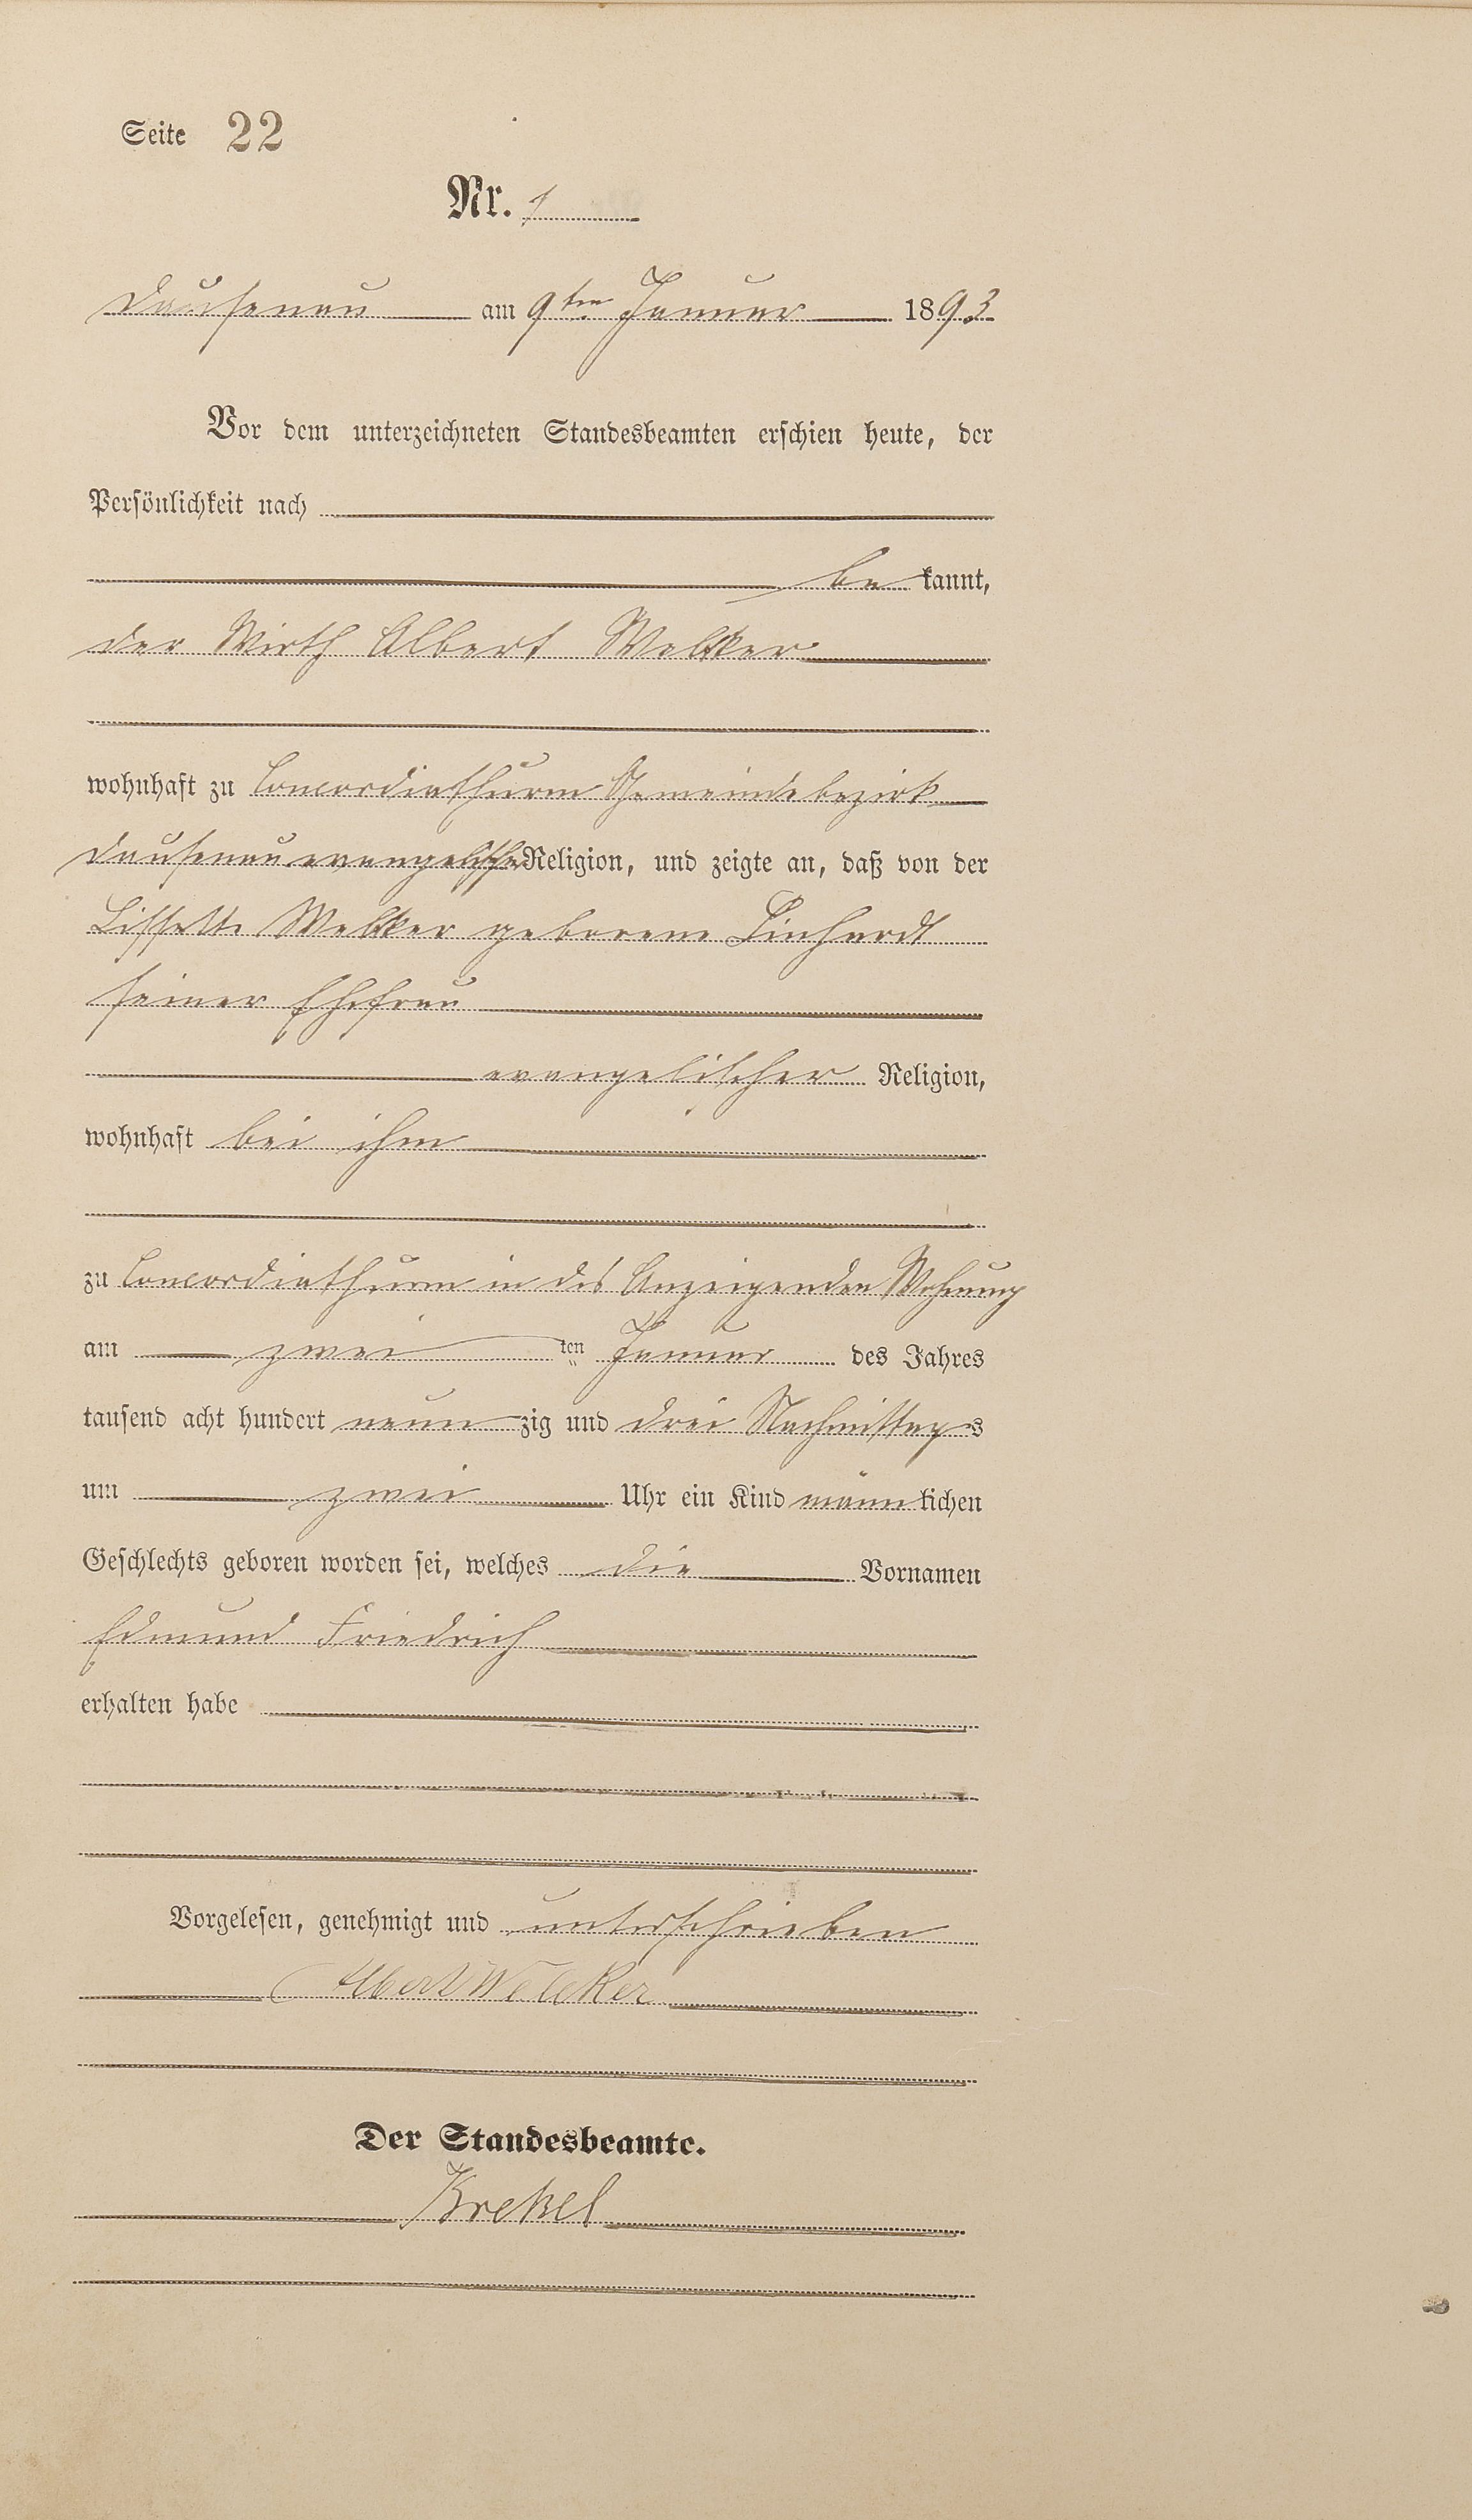 Seite 22
Nr. 1
Dausenau am 9ten Januar 1893
Vor dem unterzeichneten Standesbeamten erschien heute, der
Persönlichkeit nach
be kannt,
der Wirth Albert Welker
wohnhaft zu Concordiathurm Gemeindebezirk
Dausenau evangelischer Religion, und zeigte an, daß von der
Lissette Welker geborene Linhardt
seiner Ehefrau
evangelischer Religion,
wohnhaft bei ihm
zu Concordiathurm in des Anzeigenden Wohnung
am zwei ten Januar des Jahres
tausend acht hundert neun zig und drei Nachmittags
um zwei Uhr ein Kind männ lichen
Geschlechts geboren worden sei, welches die Vornamen
Edmund Friedrich
erhalten habe
Vorgelesen, genehmigt und unterschrieben
Albert Welcker
Der Standesbeamte.
Krekel